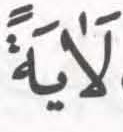 لَاٰيَةً